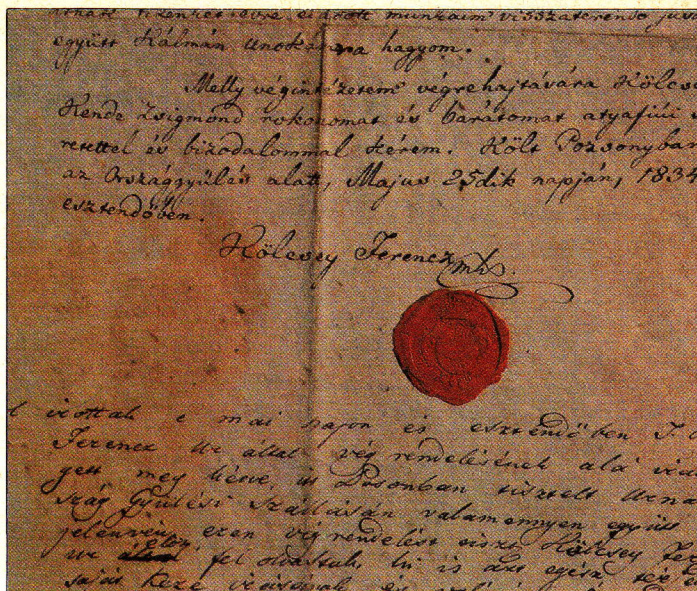 munkáim visszatérendő
együtt Kálmán unokámra hagyom.
Melly végintézetem végrehajtására Kölcse
Kende Zsigmond rokonomat és barátomat atyafiúi s
retettel és bizodalommal kérem. Költ Pozsonyban
az Országgyűlés alatt, Majus 25dik napján, 1834
esztendőben.
Kölcsey Ferencz mk.
irottak e mai napon és esztendőben
Ferencz Ur által vég rendelésének alá
gett meg kérve, is Posonban tisztelt Urna
szág Gyűlési Szállásán valamennyen együtt
jelenvén, ezen vég rendelést Kölcsey
ur előttünk fel olvastuk, ki is azt egész
saját keze és